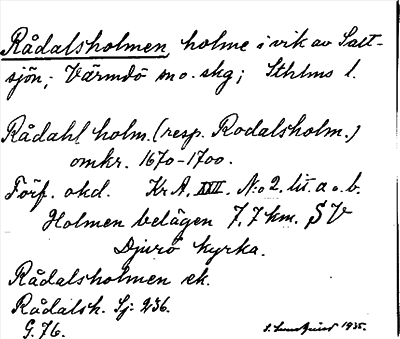 Rådalsholmen, holme i vik av Salt-
sjön; Värmdö sn o. skg; Sthlms l.
Rådahl holm. (resp. Rodalsholm.)
omkr. 1670-1700.
Förf. okd. Kr A. XXII. N:o 2. lit. a o. b.
Holmen belägen 7,7 km. SV
Djurö kyrka.
Rådalsholmen ek.
Rådalsh. Sj: 236.
G. 76.
S. Lundqvist 1935.